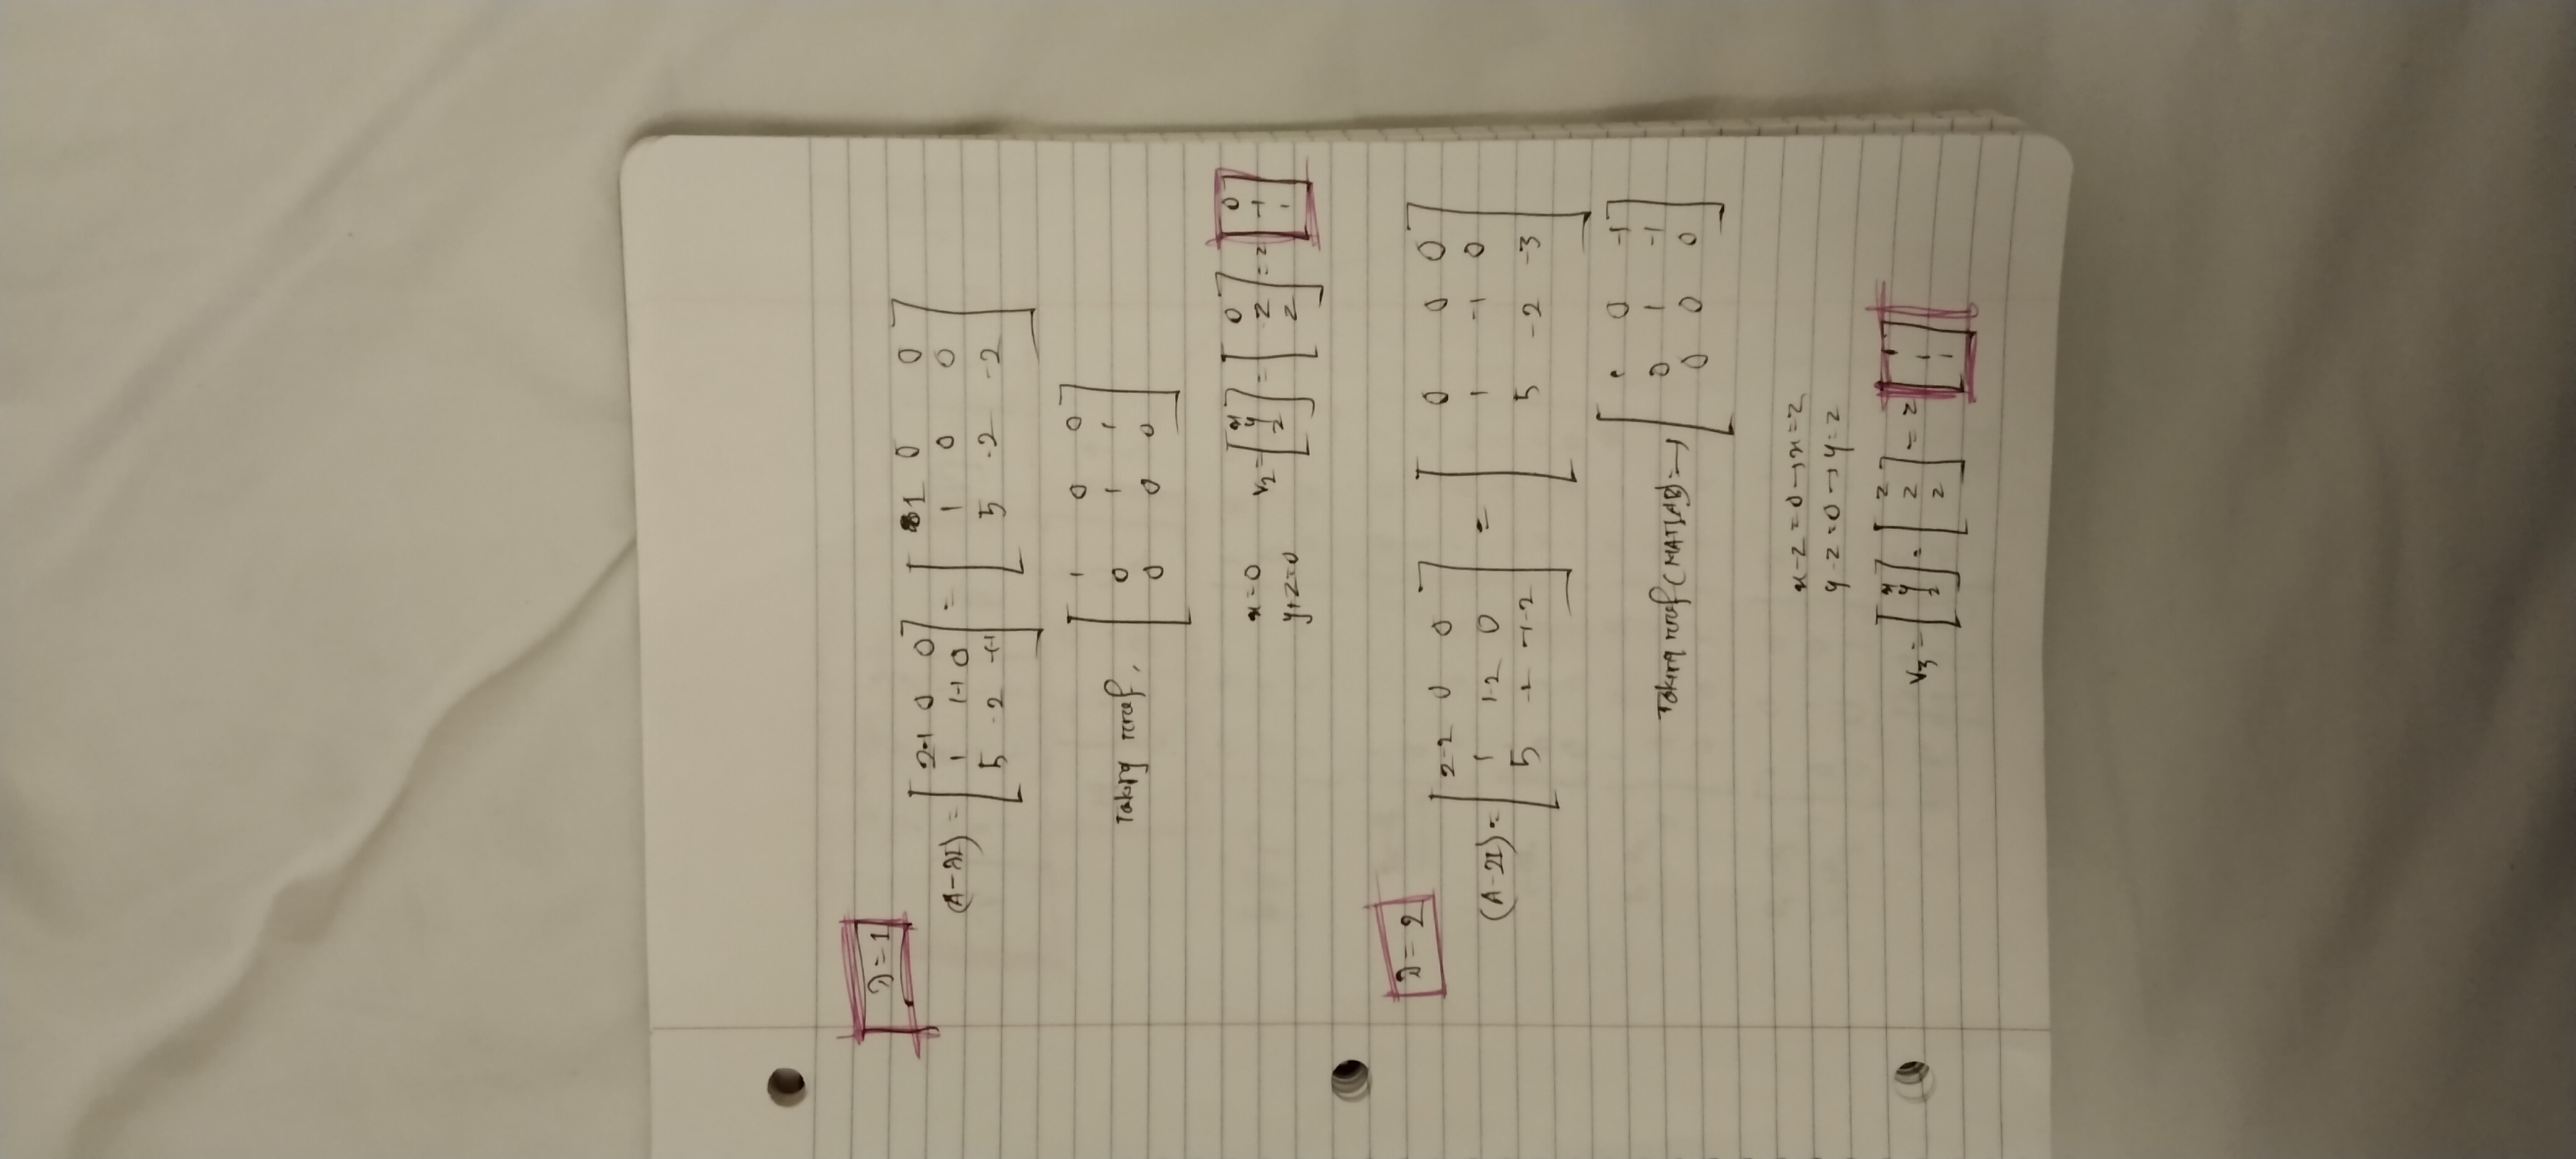 λ=1
(A-λI) = [2-1 0 0; 1 1-1 0; 5 -2 -1-1] = [1 0 0; 1 0 0; 5 -2 -2]
Taking rref, [1 0 0; 0 1 1; 0 0 0]
x=0
y+z=0
v2 = [x; y; z] = [0; z; z] = z [0; -1; 1]
λ=2
(A-2I) = [2-2 0 0; 1 1-2 0; 5 -2 -1-2] = [0 0 0; 1 -1 0; 5 -2 -3]
Taking rref (MATLAB) → [1 0 -1; 0 1 -1; 0 0 0]
x-z=0 → x=z
y-z=0 → y=z
v3 = [x; y; z] = [z; z; z] = z [1; 1; 1]